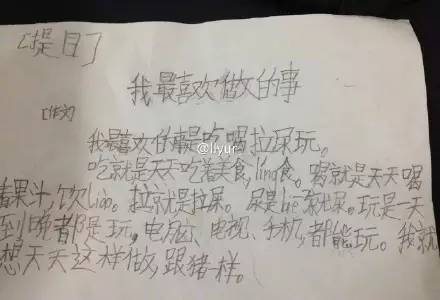 [提目]
我最喜欢做的事
[作文]
我最喜欢的事是吃喝拉尿玩。
@llyur
吃就是天天吃着美食,líng食。喝就是天天喝
着果汁,饮liào。拉就是拉屎。尿是尿尿。玩是一天
到晚都是玩,电脑、电视、手机,都能玩。我就
想天天这样做,跟猪一样。